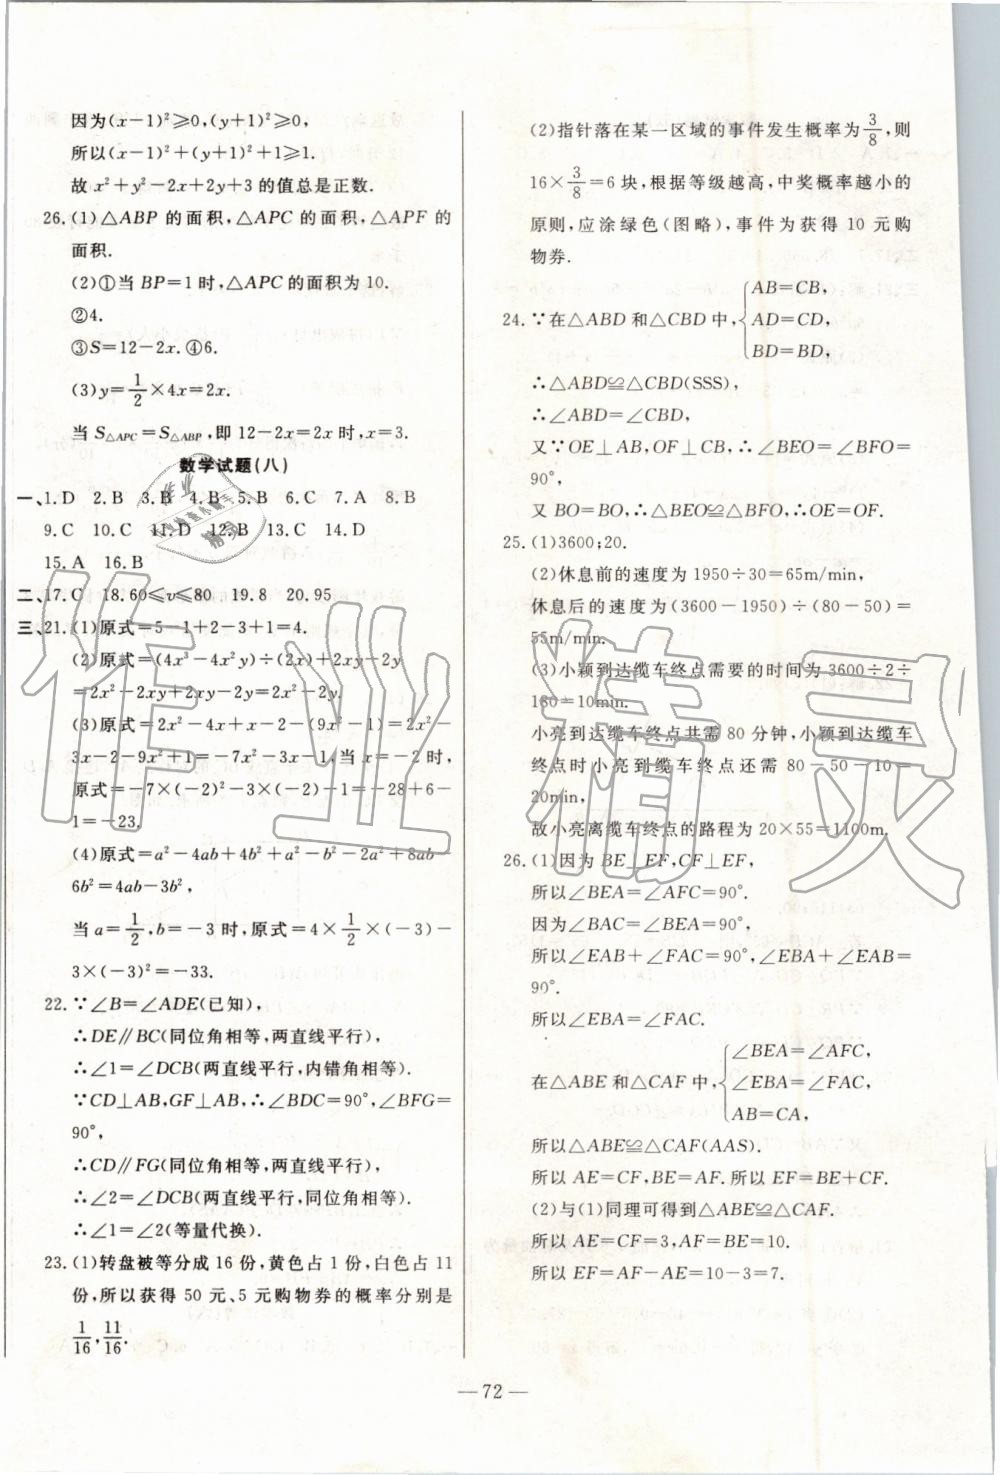 因为(x−1)²⩾0,(y+1)²⩾0,
所以(x−1)²+(y+1)²+1⩾1.
故 x²+y²−2x+2y+3 的值总是正数.
26.(1)△ABP 的面积,△APC 的面积,△APF 的
面积.
(2)①当 BP=1 时,△APC 的面积为 10.
②4.
③S=12−2x. ④6.
(3)y=1/2×4x=2x.
当 S△APC=S△ABP,即 12−2x=2x 时,x=3.
数学试题(八)
一、1. D 2. B 3. B 4. B 5. B 6. C 7. A 8. B
9. C 10. C 11. D 12. B 13. C 14. D
15. A 16. B
二、17. C 18. 60⩽v⩽80 19. 8 20. 95
三、21. (1)原式=5−1+2−3+1=4.
(2)原式=(4x³−4x²y)÷(2x)+2xy−2y
=2x²−2xy+2xy−2y=2x²−2y.
(3)原式=2x²−4x+x−2−(9x²−1)=2x²−
3x−2−9x²+1=−7x²−3x−1,当 x=−2 时,
原式=−7×(−2)²−3×(−2)−1=−28+6−
1=−23.
(4)原式=a²−4ab+4b²+a²−b²−2a²+8ab−
6b²=4ab−3b²,
当 a=1/2,b=−3 时,原式=4×1/2×(−3)−
3×(−3)²=−33.
22. ∵∠B=∠ADE(已知),
∴DE∥BC(同位角相等,两直线平行),
∴∠1=∠DCB(两直线平行,内错角相等).
∵CD⊥AB,GF⊥AB,∴∠BDC=90°,∠BFG=
90°,
∴CD∥FG(同位角相等,两直线平行),
∴∠2=∠DCB(两直线平行,同位角相等).
∴∠1=∠2(等量代换).
23. (1)转盘被等分成 16 份,黄色占 1 份,白色占 11
份,所以获得 50 元、5 元购物券的概率分别是
1/16,11/16.
(2)指针落在某一区域的事件发生概率为3/8,则
16×3/8=6 块,根据等级越高,中奖概率越小的
原则,应涂绿色(图略),事件为获得 10 元购
物券.
24. ∵在△ABD 和△CBD 中,{AB=CB,
AD=CD,
BD=BD,
∴△ABD≌△CBD(SSS),
∴∠ABD=∠CBD,
又∵OE⊥AB,OF⊥CB,∴∠BEO=∠BFO=
90°,
又 BO=BO,∴△BEO≌△BFO,∴OE=OF.
25. (1)3600;20.
(2)休息前的速度为 1950÷30=65m/min,
休息后的速度为(3600−1950)÷(80−50)=
55m/min.
(3)小颖到达缆车终点需要的时间为 3600÷2÷
180=10min.
小亮到达缆车终点共需 80 分钟,小颖到达缆车
终点时小亮到缆车终点还需 80−50−10=
20min,
故小亮离缆车终点的路程为 20×55=1100m.
26. (1)因为 BE⊥EF,CF⊥EF,
所以∠BEA=∠AFC=90°.
因为∠BAC=∠BEA=90°,
所以∠EAB+∠FAC=90°,∠EBA+∠EAB=
90°.
所以∠EBA=∠FAC.
在△ABE 和△CAF 中,{∠BEA=∠AFC,
∠EBA=∠FAC,
AB=CA,
所以△ABE≌△CAF(AAS).
所以 AE=CF,BE=AF. 所以 EF=BE+CF.
(2)与(1)同理可得到△ABE≌△CAF.
所以 AE=CF=3,AF=BE=10.
所以 EF=AF−AE=10−3=7.
— 72 —
作业精灵